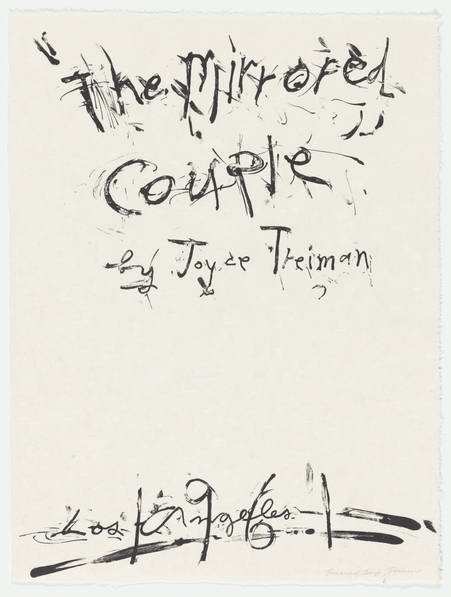 The Mirrored
Couple
by Joyce Treiman
Los Angeles
1961